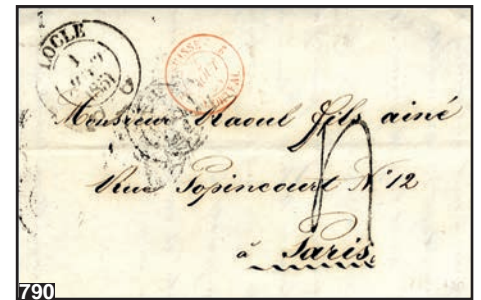 LOCLE
1851
SUISSE
AOUT
Monsieur Raoul fils ainé
Rue Popincourt N° 12
à Paris
790